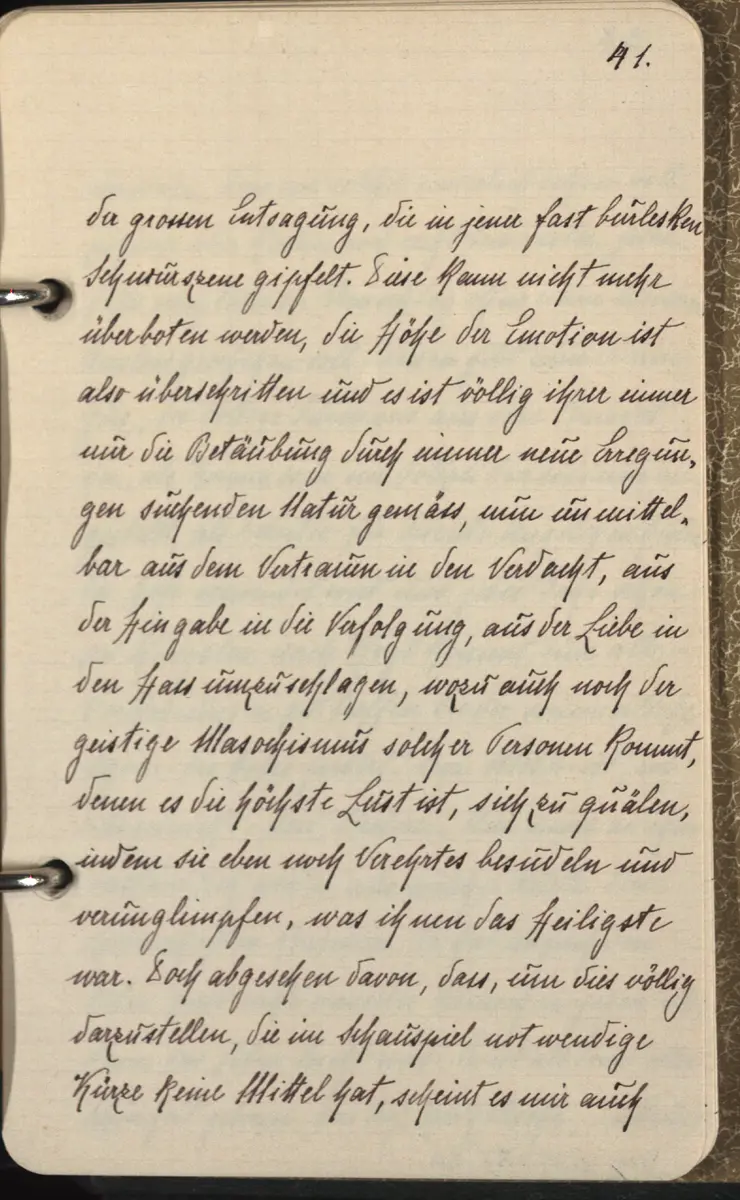 41.
der grossen Entsagung, die in jener fast burlesken
Schwurszene gipfelt. Diese kann nicht mehr
überboten werden, die Höhe der Emotion ist
also überschritten und es ist völlig ihrer immer
nur die Betäubung durch immer neue Erregun-
gen suchenden Natur gemäss, nun unmittel-
bar aus dem Vertraun in den Verdacht, aus
der Hingabe in die Verfolgung, aus der Liebe in
den Hass umzuschlagen, wozu auch noch der
geistige Masochismus solcher Personen kommt,
denen es die höchste Lust ist, sich zu quälen,
indem sie eben noch Verehrtes besudeln und
verunglimpfen, was ihnen das Heiligste
war. Doch abgesehen davon, dass, um dies völlig
darzustellen, die im Schauspiel notwendige
Kürze keine Mittel hat, scheint es mir auch